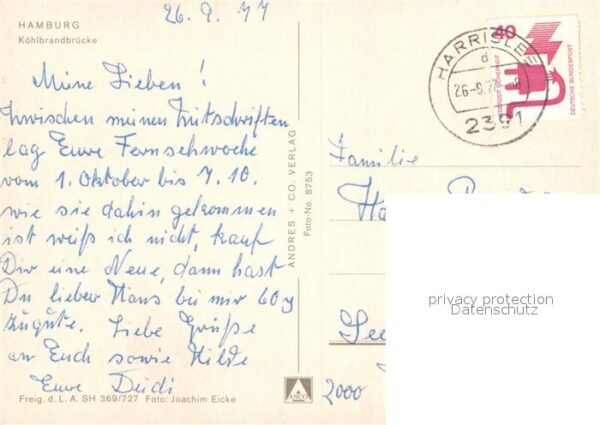 HAMBURG
Köhlbrandbrücke
26.9.77
Meine Lieben!
Zwischen meinen Zeitschriften
lag Eure Fernsehwoche
vom 1. Oktober bis 7.10.
wie sie dahin gekommen
ist weiß ich nicht, kauf
Dir eine Neue, dann hast
Du lieber Hans bei mir 60
zugute. Liebe Grüße
an Euch sowie Hilde
Eure Deidi
Freig. d. L. A. SH 369/727 Foto: Joachim Eicke
ANDRES + CO. VERLAG
Foto-No. 8753
ANCO
40
DEUTSCHE BUNDESPOST
HARRISLEE
d
26.-9.77
2391
Familie
2000
privacy protection
Datenschutz